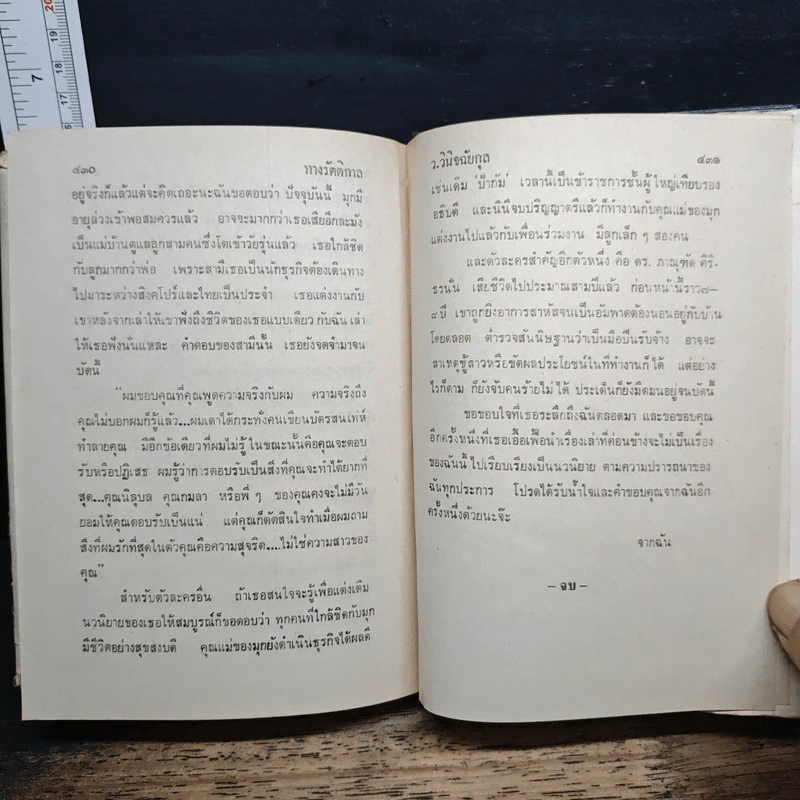 ๔๓๐ ทางรัตติกาล
อยู่จริงก็แล้วแต่จะคิดเถอะนะฉันขอตอบว่า ปัจจุบันนี้ มุกมี
อายุล่วงเข้าพอสมควรแล้ว อาจจะมากกว่าเธอเสียอีกละมัง
เป็นแม่บ้านดูแลลูกสามคนซึ่งโตเข้าวัยรุ่นแล้ว เธอใกล้ชิด
กับลูกมากกว่าพ่อ เพราะสามีเธอเป็นนักธุรกิจต้องเดินทาง
ไปมาระหว่างสิงคโปร์และไทยเป็นประจำ เธอแต่งงานกับ
เขาหลังจากเล่าให้เขาฟังถึงชีวิตของเธอแบบเดียว กับฉัน เล่า
ให้เธอฟังนั่นแหละ คำตอบของสามีนั้น เธอยังจดจำมาจน
บัดนี้
"ผมขอบคุณที่คุณพูดความจริงกับผม ความจริงถึง
คุณไม่บอกผมก็รู้แล้ว...ผมเดาได้กระทั่งคนเขียนบัตรสนเท่ห์
ทำลายคุณ มีอีกข้อเดียวที่ผมไม่รู้ในขณะนั้นคือคุณจะตอบ
รับหรือปฏิเสธ ผมรู้ว่าการตอบรับเป็นสิ่งที่คุณจะทำได้ยากที่
สุด...คุณนิลุบล คุณกมลา หรือพี่ ๆ ของคุณคงจะไม่มีวัน
ยอมให้คุณตอบรับเป็นแน่ แต่คุณก็ตัดสินใจทำเมื่อผมถาม
สิ่งที่ผมรักที่สุดในตัวคุณคือความสุจริต....ไม่ใช่ความสาวของ
คุณ"
สำหรับตัวละครอื่น ถ้าเธอสนใจจะรู้เพื่อแต่งเติม
นวนิยายของเธอให้สมบูรณ์ก็ขอตอบว่า ทุกคนที่ใกล้ชิดกับมุก
มีชีวิตอย่างสุขสงบดี คุณแม่ของมุกยังดำเนินธุรกิจได้ผลดี
ว.วินิจฉัยกุล ๔๓๑
เช่นเดิม 'ป้ากัม' เวลานี้เป็นข้าราชการชั้นผู้ใหญ่เทียบรอง
อธิบดี และนินีจบปริญญาตรีแล้วก็ทำงานกับคุณแม่ของมุก
แต่งงานไปแล้วกับเพื่อนร่วมงาน มีลูกเล็ก ๆ สองคน
และตัวละครสำคัญอีกตัวหนึ่ง คือ ดร. ภาณุทัต คีริ-
ธรนั้น เสียชีวิตไปประมาณสามปีแล้ว ก่อนหน้านี้ราว๗-
๘ ปี เขาถูกยิงอาการสาหัสจนเป็นอัมพาตต้องนอนอยู่กับบ้าน
โดยตลอด ตำรวจสันนิษฐานว่าเป็นมือปืนรับจ้าง อาจจะ
สาเหตุชู้สาวหรือขัดผลประโยชน์ในที่ทำงานก็ได้ แต่อย่าง
ไรก็ตาม ก็ยังจับคนร้ายไม่ได้ ประเด็นก็ยังมืดมนอยู่จนบัดนี้
ขอขอบใจที่เธอระลึกถึงฉันตลอดมา และขอขอบคุณ
อีกครั้งหนึ่งที่เธอเอื้อเฟื้อนำเรื่องเล่าที่ค่อนข้างจะไม่เป็นเรื่อง
ของฉันนี้ ไปเรียบเรียงเป็นนวนิยาย ตามความปรารถนาของ
ฉันทุกประการ โปรดได้รับน้ำใจและคำขอบคุณจากฉันอีก
ครั้งหนึ่งด้วยนะจ๊ะ
จากฉัน
– จบ –
7
20
19
18
17
16